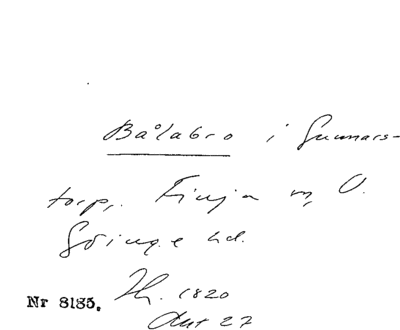 Bålabro i Gunnars-
torp, Finja m, O.
Göinge hd.
Nr 8185. Th. 1820
Akt 27